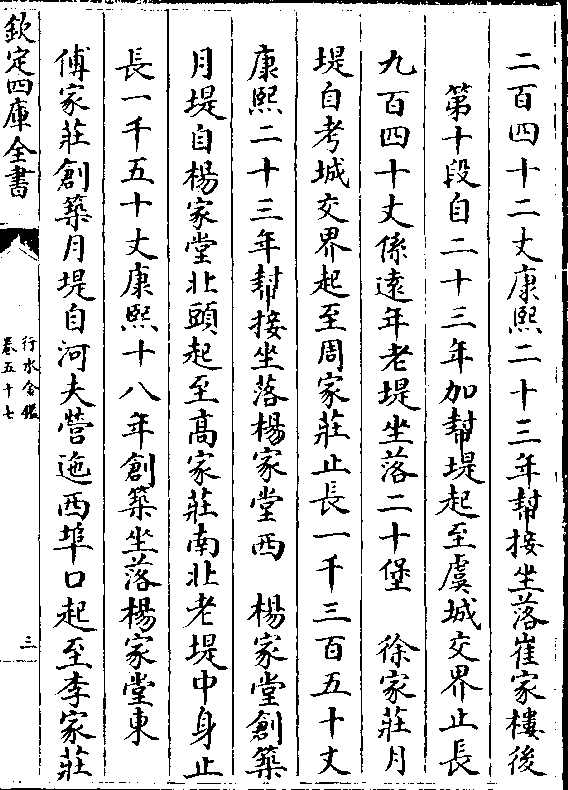 二百四十二丈康熙二十三年幫接坐落崔家樓後
第十段自二十三年加幫堤起至虞城交界止長
九百四十丈係遠年老堤坐落二十堡　徐家莊月
堤自考城交界起至周家莊止長一千三百五十丈
康熙二十三年幫接坐落楊家堂西　楊家堂創築
月堤自楊家堂北頭起至高家莊南北老堤中身止
長一千五十丈康熙十八年創築坐落楊家堂東
傅家莊創築月堤自河夫營迤西埠口起至李家莊
欽定四庫全書
行水金鑑
卷五十七
三